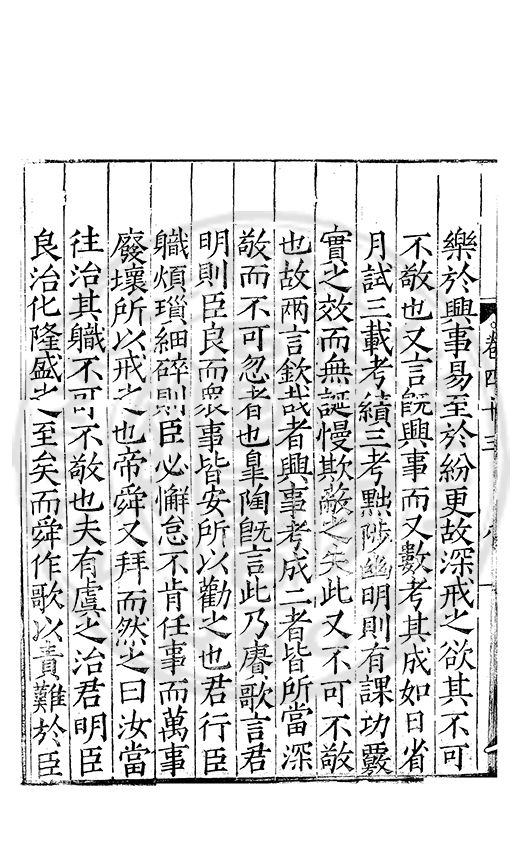 樂於興事易至於紛更故深戒之欲其不可
不敬也又言旣興事而又數考其成如日省
月試三載考績三考黜陟幽明則有課功覈
實之效而無誕慢欺蔽之失此又不可不敬
也故兩言欽哉者興事考成二者皆所當深
敬而不可忽者也皐陶旣言此乃賡歌言君
明則臣良而衆事皆安所以勸之也君行臣
職煩瑣細碎則臣必懈怠不肯任事而萬事
廢壞所以戒之也帝舜又拜而然之曰汝當
往治其職不可不敬也夫有虞之治君明臣
良治化隆盛之至矣而舜作歌以責難於臣
卷四十三